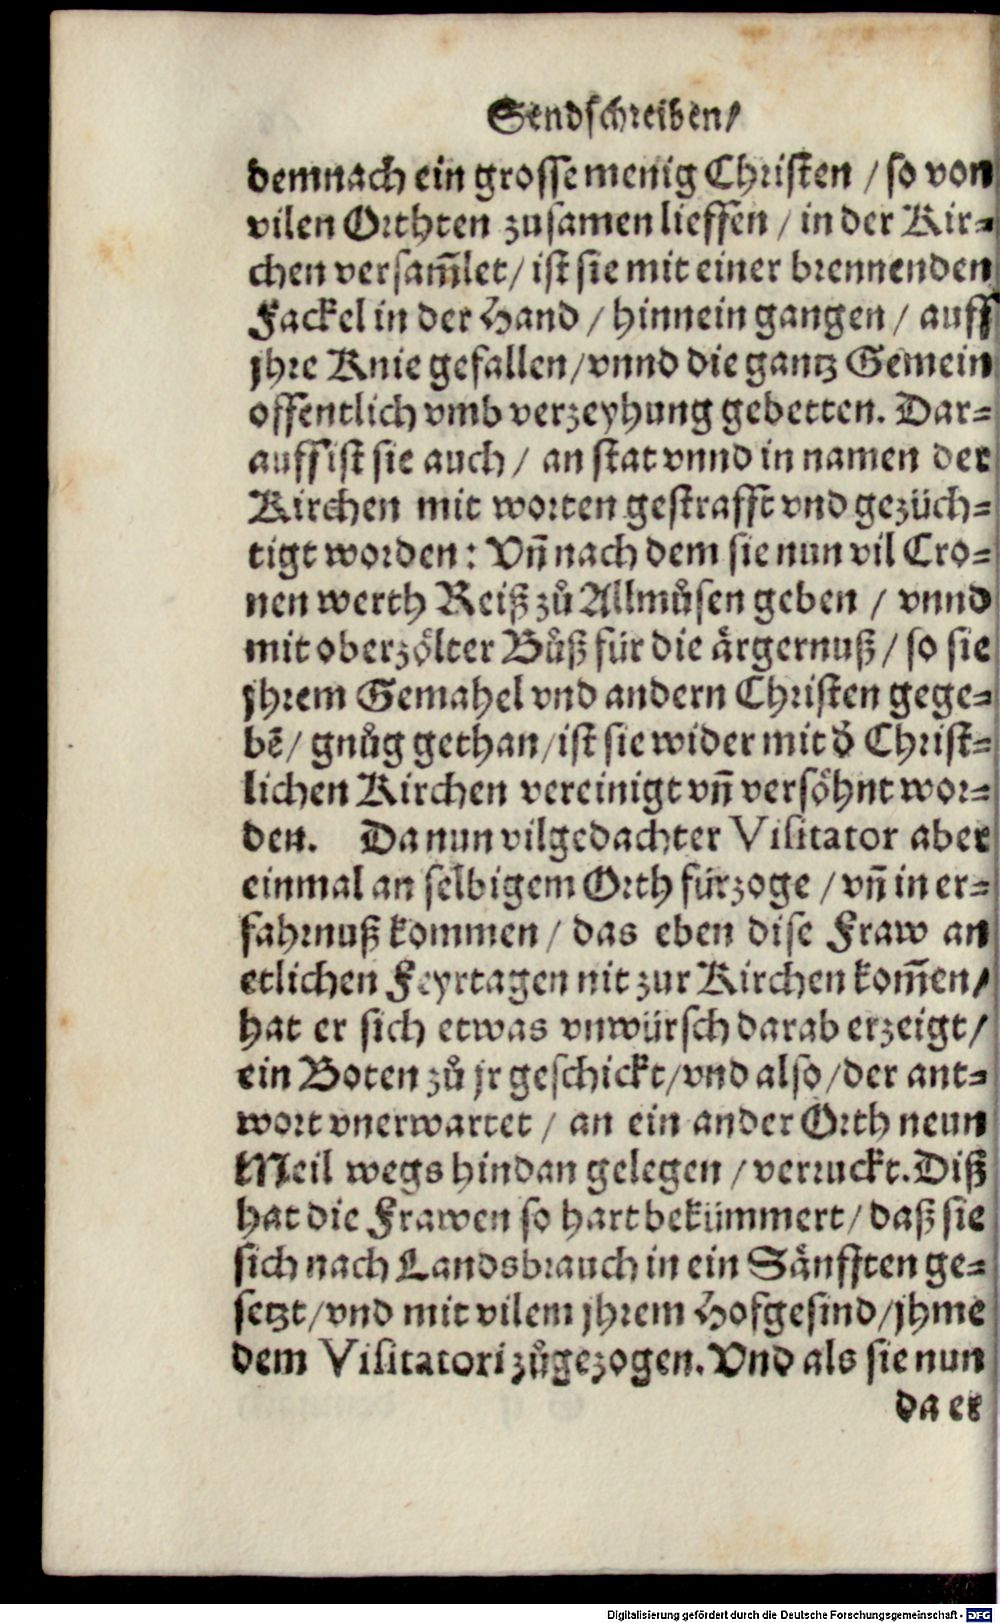 Sendschreiben/
demnach ein grosse menig Christen / so von
vilen Orthten zusamen lieffen / in der Kir-
chen versam̃let / ist sie mit einer brennenden
Fackel in der Hand / hinnein gangen / auff
jhre Knie gefallen / vnnd die gantz Gemein
offentlich vmb verzeyhung gebetten. Dar-
auff ist sie auch / an stat vnnd in namen der
Kirchen mit worten gestrafft vnd gezüch-
tigt worden: Vñ nach dem sie nun vil Cro-
nen werth Reiß zů Allmůsen geben / vnnd
mit oberzölter Bůß für die ärgernuß / so sie
jhrem Gemahel vnd andern Christen gege-
bẽ / gnůg gethan / ist sie wider mit d̕ Christ-
lichen Kirchen vereinigt vñ versöhnt wor-
den. Da nun vilgedachter Visitator aber
einmal an selbigem Orth fürzoge / vñ in er-
fahrnuß kommen / das eben dise Fraw an
etlichen Feyrtagen nit zur Kirchen kom̃en /
hat er sich etwas vnwürsch darab erzeigt /
ein Boten zů jr geschickt / vnd also / der ant-
wort vnerwartet / an ein ander Orth neun
Meil wegs hindan gelegen / verruckt. Diß
hat die Frawen so hart bekümmert / daß sie
sich nach Landsbrauch in ein Sänfften ge-
setzt / vnd mit vilem jhrem Hofgesind / jhme
dem Visitatori zůgezogen. Vnd als sie nun
da er
Digitalisierung gefördert durch die Deutsche Forschungsgemeinschaft - DFG